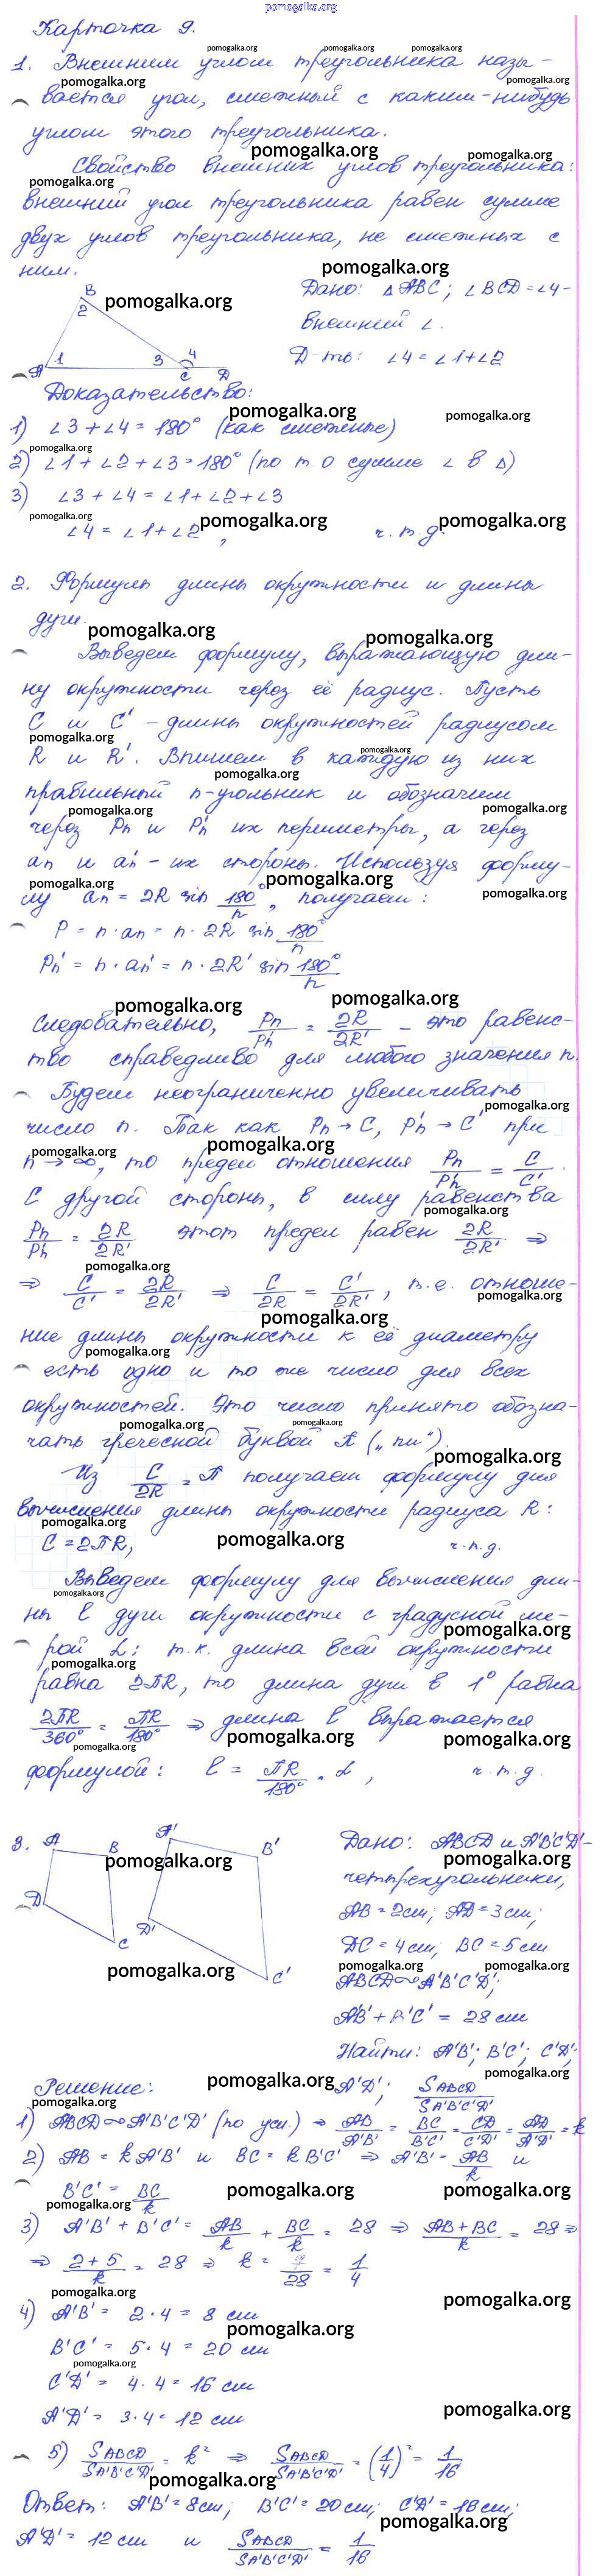 pomogalka.org
Карточка 9.
1. Внешним углом треугольника назы-
вается угол, смежный с каким-нибудь
углом этого треугольника.
Свойство внешних углов треугольника:
внешний угол треугольника равен сумме
двух углов треугольника, не смежных с
ним.
Дано: △ABC; ∠BCD = ∠4 -
внешний ∠.
Д-ть: ∠4 = ∠1 + ∠2
B
2
A 1 3 4 C D
Доказательство:
1) ∠3 + ∠4 = 180° (как смежные)
2) ∠1 + ∠2 + ∠3 = 180° (по т. о сумме ∠ в △)
3) ∠3 + ∠4 = ∠1 + ∠2 + ∠3
∠4 = ∠1 + ∠2, ч.т.д.
2. Формулы длины окружности и длины
дуги.
Выведем формулу, выражающую дли-
ну окружности через её радиус. Пусть
C и C' - длины окружностей радиусом
R и R'. Впишем в каждую из них
правильный n-угольник и обозначим
через Pn и Pn' их периметры, а через
an и an' - их стороны. Используя форму-
лу an = 2R sin 180°/n, получаем:
P = n · an = n · 2R sin 180°/n
Pn' = n · an' = n · 2R' sin 180°/n
Следовательно, Pn/Pn' = 2R/2R' - это равенс-
тво справедливо для любого значения n.
Будем неограниченно увеличивать
число n. Так как Pn → C, Pn' → C' при
n → ∞, то предел отношения Pn/Pn' = C/C'.
С другой стороны, в силу равенства
Pn/Pn = 2R/2R' этот предел равен 2R/2R' ⇒
⇒ C/C' = 2R/2R' ⇒ C/2R = C'/2R', т.е. отноше-
ние длины окружности к её диаметру
есть одно и то же число для всех
окружностей. Это число принято обозна-
чать греческой буквой π („пи").
Из C/2R = π получаем формулу для
вычисления длины окружности радиуса R:
C = 2πR, ч.т.д.
Выведем формулу для вычисления дли-
ны l дуги окружности с градусной ме-
рой α: т.к. длина всей окружности
равна 2πR, то длина дуги в 1° равна
2πR/360° = πR/180° ⇒ длина l выражается
формулой: l = πR/180° · α, ч.т.д.
3. A B C D A' B' C' D'
Дано: ABCD и A'B'C'D' -
четырехугольники;
AB = 2см; AD = 3см;
DC = 4см; BC = 5см
ABCD ∾ A'B'C'D';
A'B' + B'C' = 28 см
Найти: A'B'; B'C'; C'D';
A'D'; SABCD/SA'B'C'D'
Решение:
1) ABCD ∾ A'B'C'D' (по усл.) ⇒ AB/A'B' = BC/B'C' = CD/C'D' = AD/A'D' = k
2) AB = kA'B' и BC = kB'C' ⇒ A'B' = AB/k и
B'C' = BC/k
3) A'B' + B'C' = AB/k + BC/k = 28 ⇒ AB+BC/k = 28 ⇒
⇒ 2+5/k = 28 ⇒ k = 7/28 = 1/4
4) A'B' = 2 · 4 = 8 см
B'C' = 5 · 4 = 20 см
C'D' = 4 · 4 = 16 см
A'D' = 3 · 4 = 12 см
5) SABCD/SA'B'C'D' = k² ⇒ SABCD/SA'B'C'D' = (1/4)² = 1/16
Ответ: A'B' = 8см; B'C' = 20см; C'D' = 16см;
A'D' = 12 см и SABCD/SA'B'C'D' = 1/16